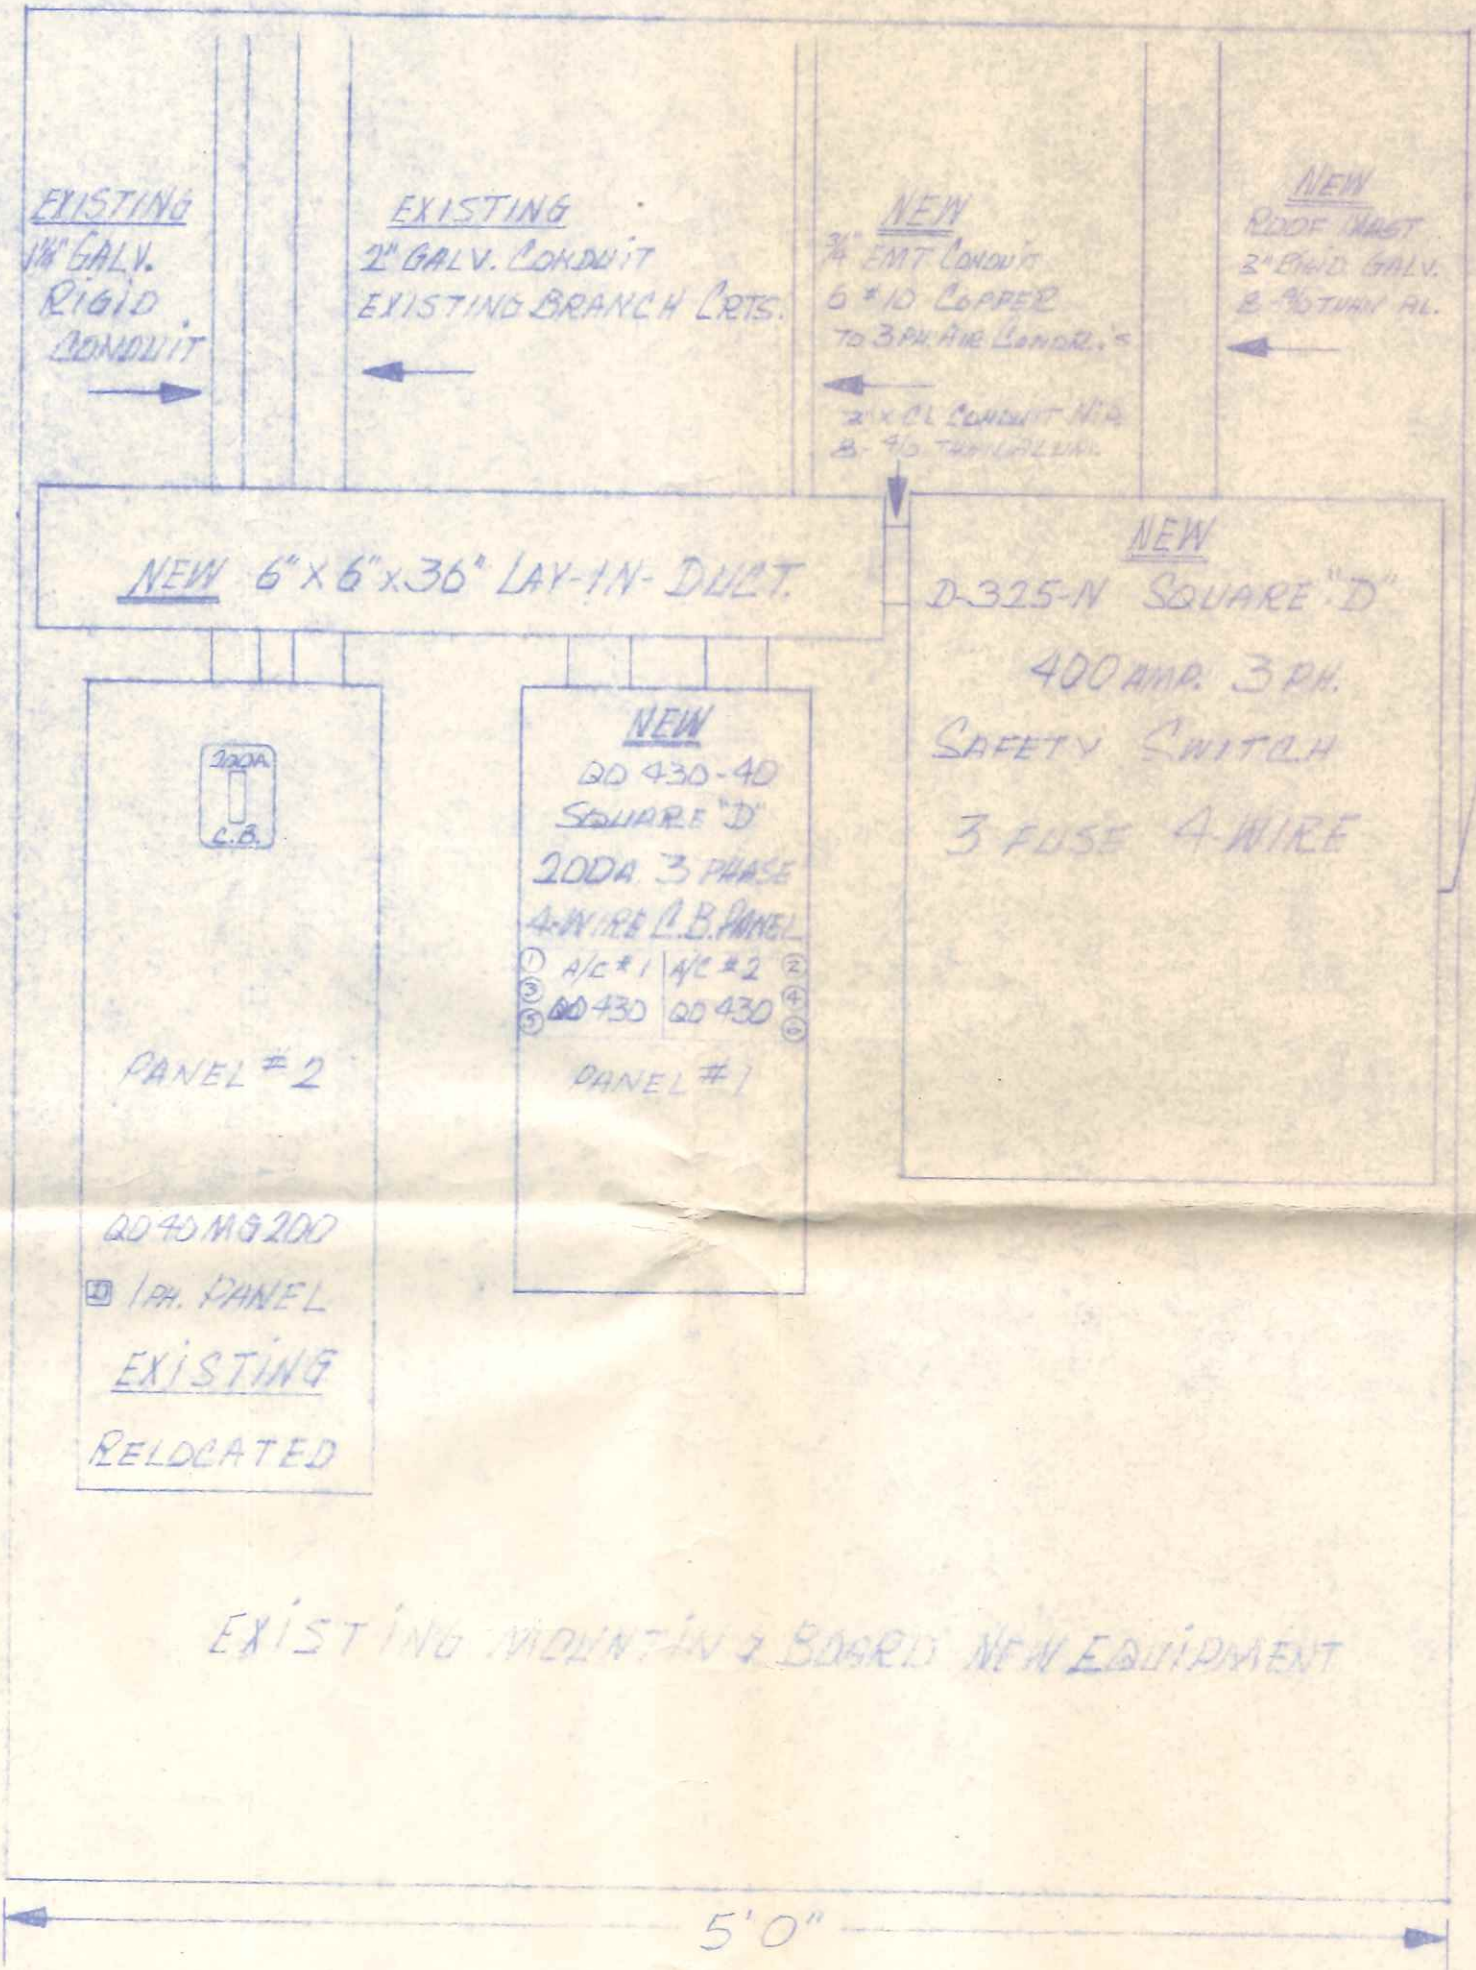 EXISTING
1¼" GALV.
RIGID
CONDUIT
EXISTING
2" GALV. CONDUIT
EXISTING BRANCH CRTS.
NEW
¾" EMT CONDUIT
6 #10 COPPER
TO 3 PH. AIR CONDR.'S
CONDUIT
8- 4/0
NEW
ROOF MAST
3" RIGID GALV.
8-4/0 THHN AL.
NEW 6" X 6" X 36" LAY-IN-DUCT.
NEW
D-325-N SQUARE "D"
400 AMP. 3 PH.
SAFETY SWITCH
3 FUSE 4-WIRE
200A
C.B.
PANEL #2
QO40MG200
D 1PH. PANEL
EXISTING
RELOCATED
NEW
QO 430-40
SQUARE "D"
200A 3 PHASE
4-WIRE C.B. PANEL
1 A/C #1 A/C #2 2
3 4
5 QO 430 QO 430 6
PANEL #1
EXISTING MOUNTING BOARD NEW EQUIPMENT
5'0"